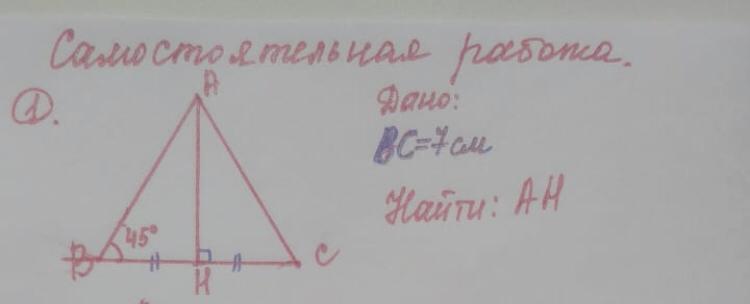 Самостоятельная работа.
1.
A
Дано:
BC=7см
45°
Найти: AH
B
H
C